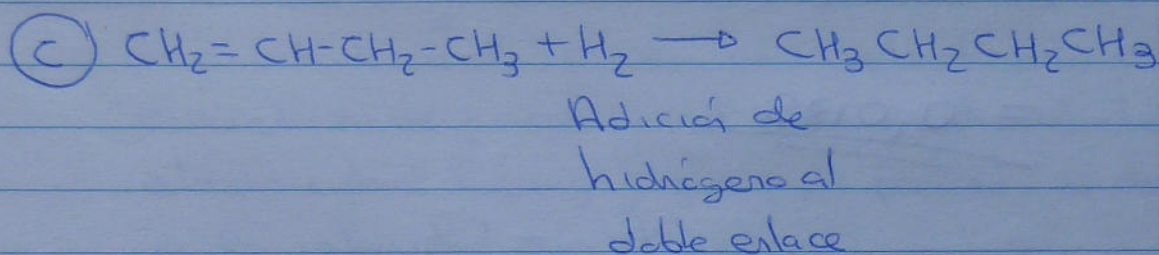 C CH₂=CH-CH₂-CH₃+H₂ → CH₃ CH₂ CH₂ CH₃
Adición de
hidrógeno al
doble enlace